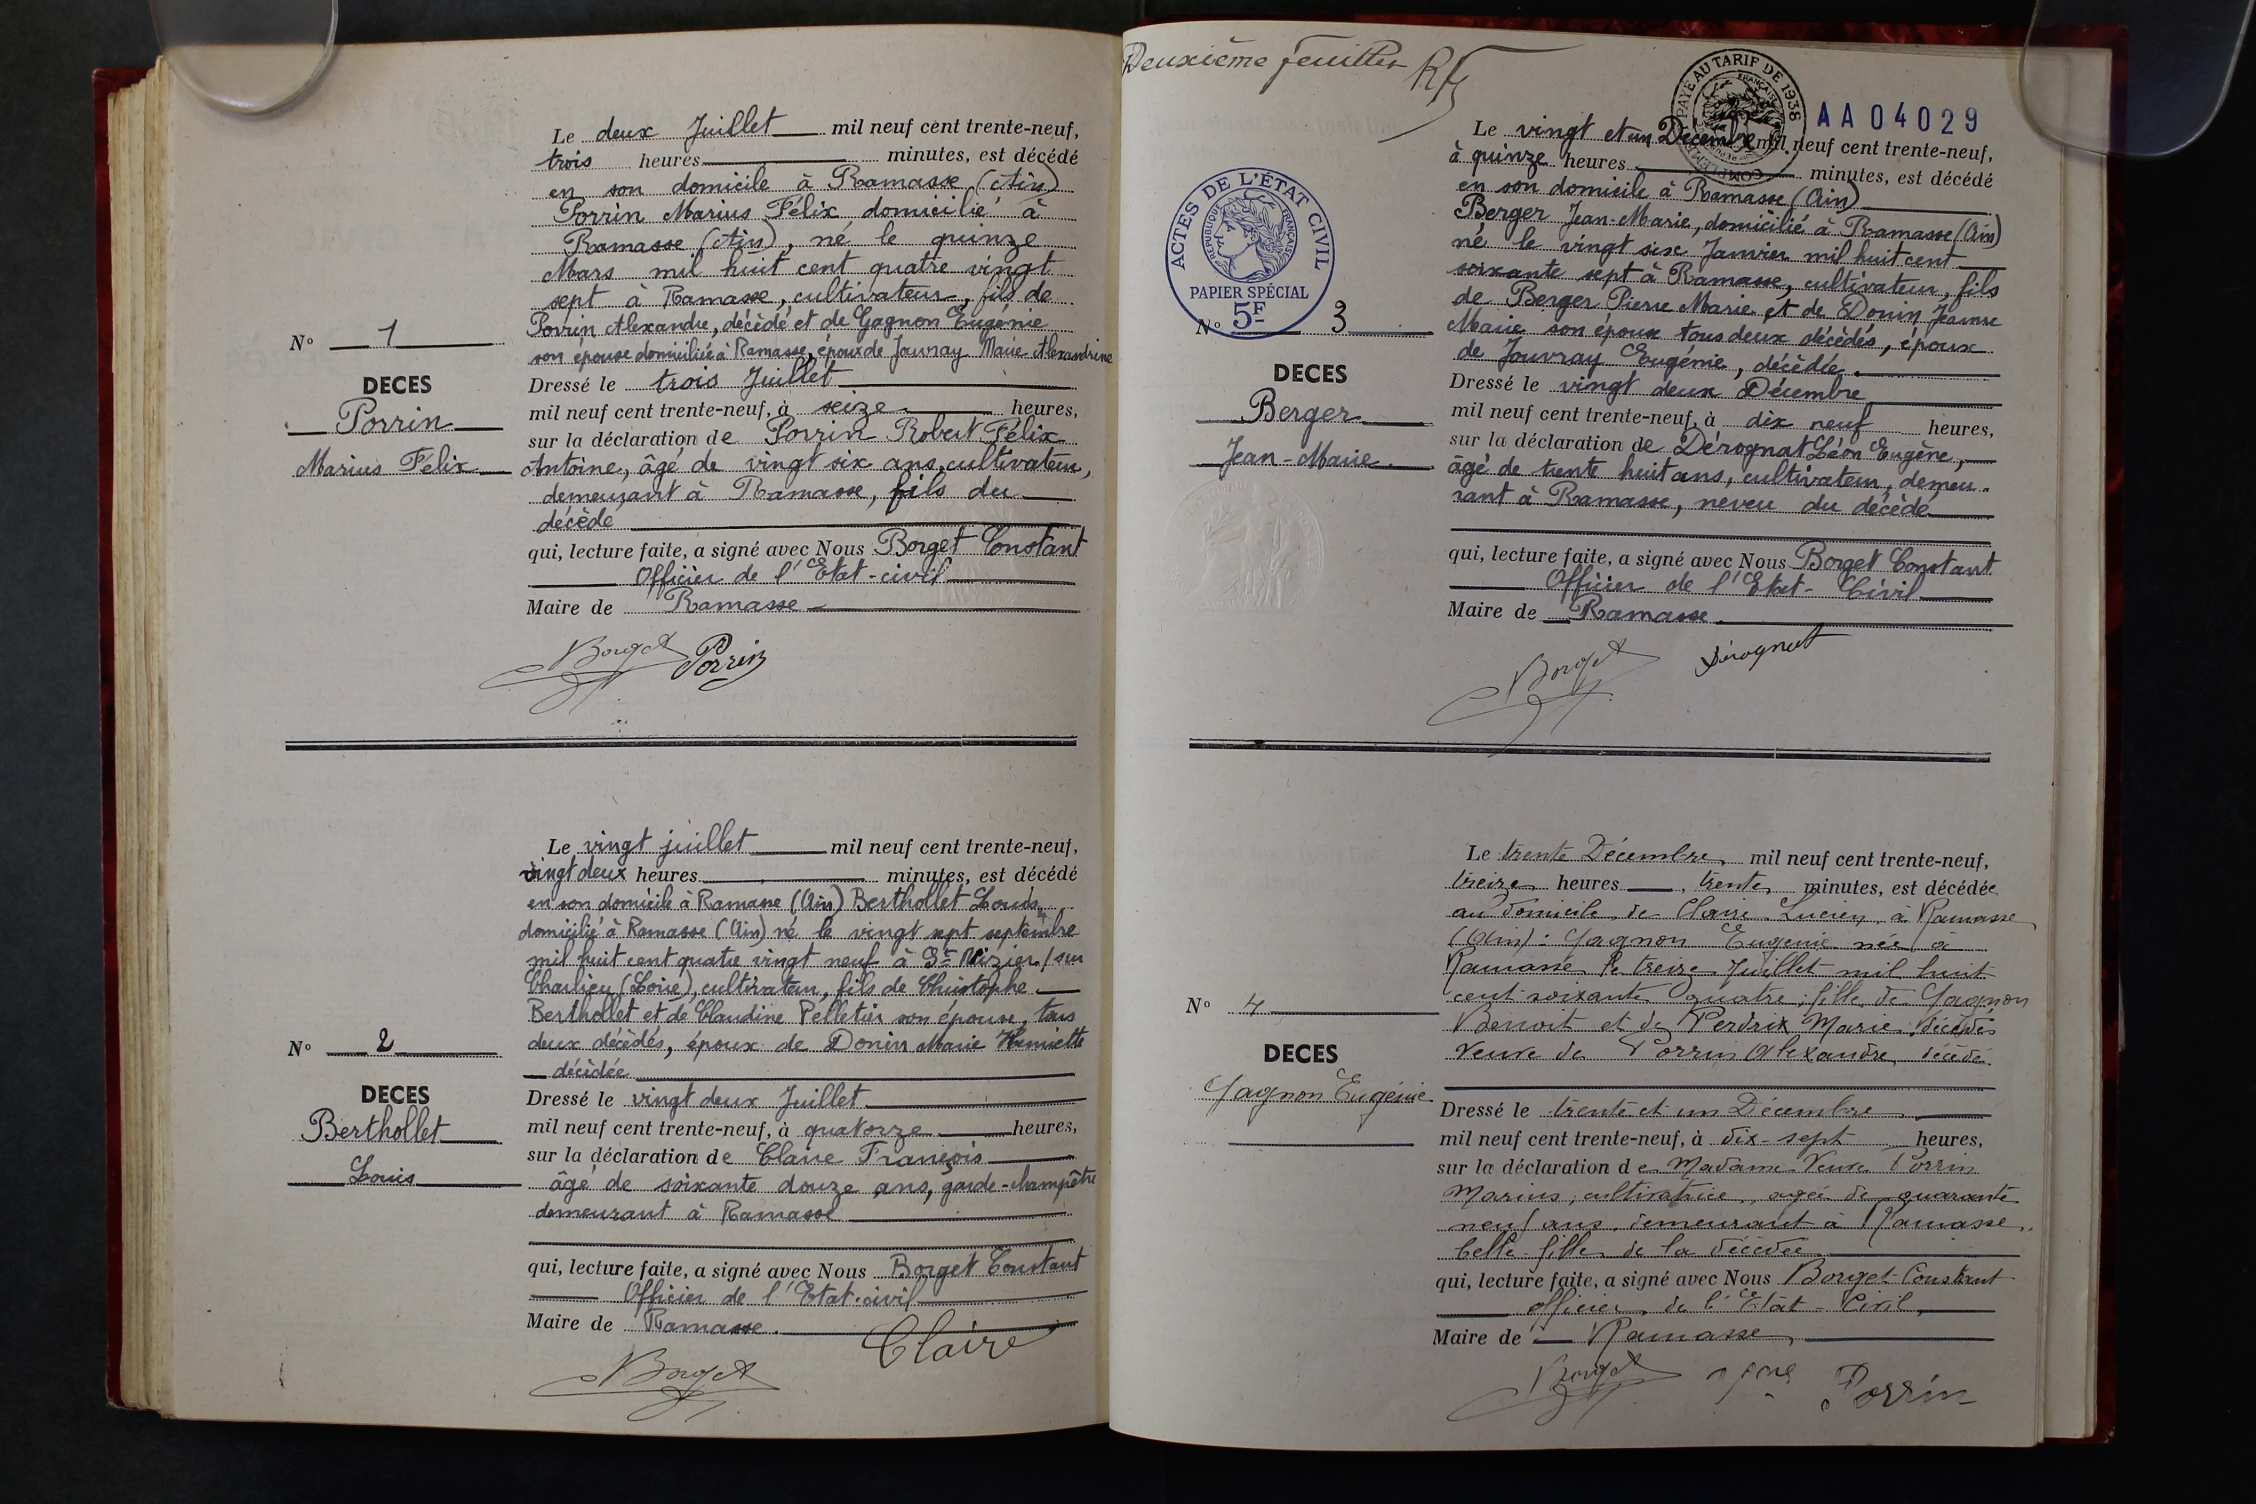 Le deux Juillet mil neuf cent trente-neuf,
trois heures minutes, est décédé
en son domicile à Ramasse (Ain)
Porrin Marius Félix domicilié à
Ramasse (Ain), né le quinze
Mars mil huit cent quatre vingt
sept à Ramasse, cultivateur, fils de
Porrin Alexandre, décédé et de Gagnon Eugénie
son épouse domiciliée à Ramasse, époux de Jouvray Marie Alexandrine
N° 1
DECES
Porrin
Marius Félix
Dressé le trois Juillet
mil neuf cent trente-neuf, à seize heures,
sur la déclaration de Porrin Robert Félix
Antoine, âgé de vingt six ans, cultivateur,
demeurant à Ramasse, fils du
décédé
qui, lecture faite, a signé avec Nous Borget Constant
Officier de l'Etat-civil
Maire de Ramasse
Borget Porrin
Le vingt juillet mil neuf cent trente-neuf,
vingt deux heures minutes, est décédé
en son domicile à Ramasse (Ain) Berthollet Louis
domicilié à Ramasse (Ain) né le vingt sept septembre
mil huit cent quatre vingt neuf à St Nizier / sur
Charlieu (Loire), cultivateur, fils de Christophe
Berthollet et de Claudine Pelletier son épouse, tous
deux décédés, époux de Donin Marie Henriette
décédée
N° 2
DECES
Berthollet
Louis
Dressé le vingt deux Juillet
mil neuf cent trente-neuf, à quatorze heures,
sur la déclaration de Claire François
âgé de soixante douze ans, garde-champêtre
demeurant à Ramasse
qui, lecture faite, a signé avec Nous Borget Constant
Officier de l'Etat-civil
Maire de Ramasse.
Borget Claire
Deuxième feuillet
PAYE AU TARIF DE 1938
AA 04029
Le vingt et un Décembre mil neuf cent trente-neuf,
à quinze heures minutes, est décédé
en son domicile à Ramasse (Ain)
Berger Jean-Marie, domicilié à Ramasse (Ain)
né le vingt six Janvier mil huit cent
soixante sept à Ramasse, cultivateur, fils
de Berger Pierre Marie et de Donin Jeanne
Marie son époux tous deux décédés, époux
de Jouvray Eugénie, décédée.
ACTES DE L'ÉTAT CIVIL
RÉPUBLIQUE FRANÇAISE
PAPIER SPÉCIAL
5F
N° 3
DECES
Berger
Jean-Marie
Dressé le vingt deux Décembre
mil neuf cent trente-neuf, à dix neuf heures,
sur la déclaration de Dérognat Léon Eugène,
âgé de trente huit ans, cultivateur, demeu-
rant à Ramasse, neveu du décédé
qui, lecture faite, a signé avec Nous Borget Constant
Officier de l'Etat-Civil
Maire de Ramasse
Borget Dérognat
Le trente Décembre mil neuf cent trente-neuf,
treize heures, trente minutes, est décédée
au domicile de Claire Lucien à Ramasse
(Ain): Gagnon Eugénie née à
Ramasse le treize Juillet mil huit
cent soixante quatre, fille de Gagnon
Benoit et de Perdrix Marie, décédés
Veuve de Porrin Alexandre, décédé.
N° 4
DECES
Gagnon Eugénie
Dressé le trente et un Décembre
mil neuf cent trente-neuf, à dix-sept heures,
sur la déclaration de Madame Veuve Porrin
Marius, cultivatrice, agée de quarante
neuf ans, demeurant à Ramasse,
belle-fille de la décédée
qui, lecture faite, a signé avec Nous Borget Constant
officier de l'Etat-Civil,
Maire de Ramasse
Borget Porrin